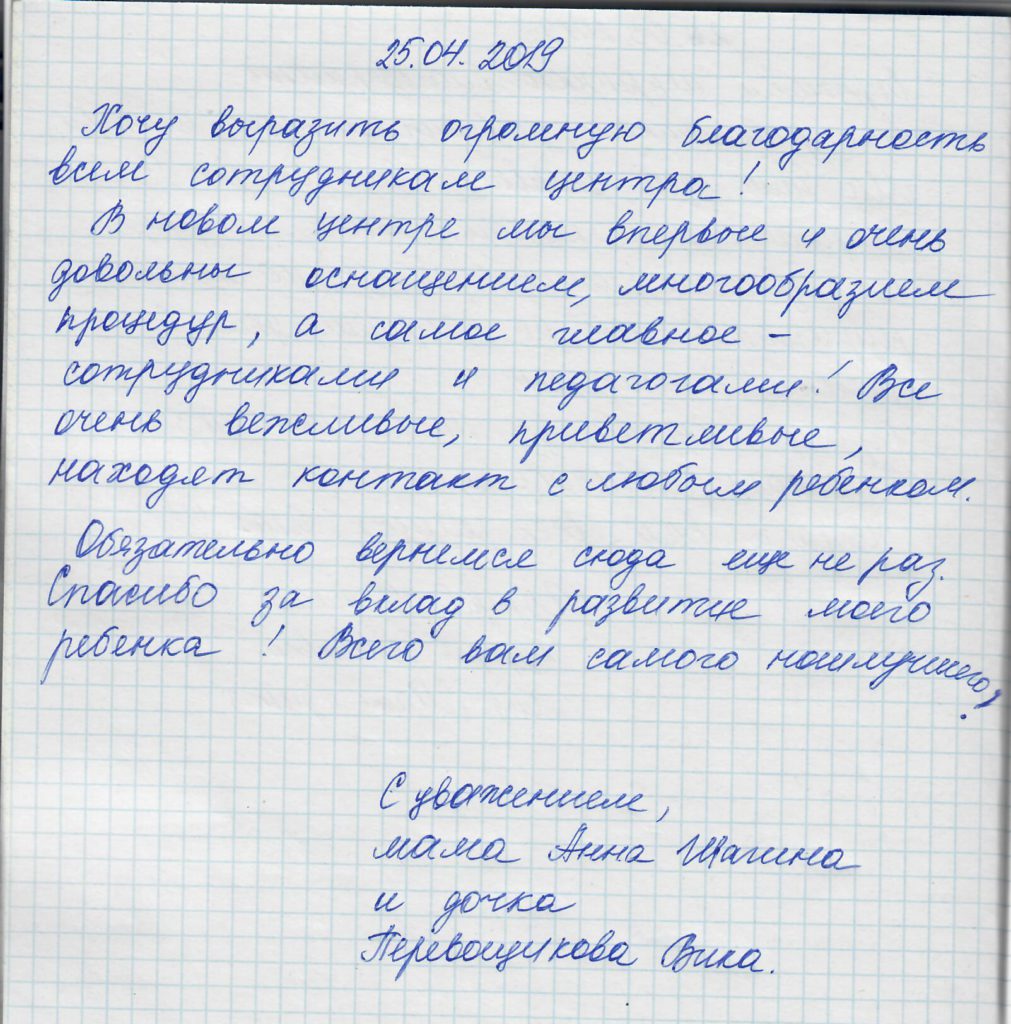 25.04.2019
Хочу выразить огромную благодарность
всем сотрудникам центра!
В новом центре мы впервые и очень
довольны оснащением, многообразием
процедур, а самое главное –
сотрудниками и педагогами! Все
очень вежливые, приветливые,
находят контакт с любым ребенком.
Обязательно вернемся сюда еще не раз.
Спасибо за вклад в развитие моего
ребенка! Всего вам самого наилучшего!
С уважением,
мама Анна Шагина
и дочка
Перевощикова Вика.